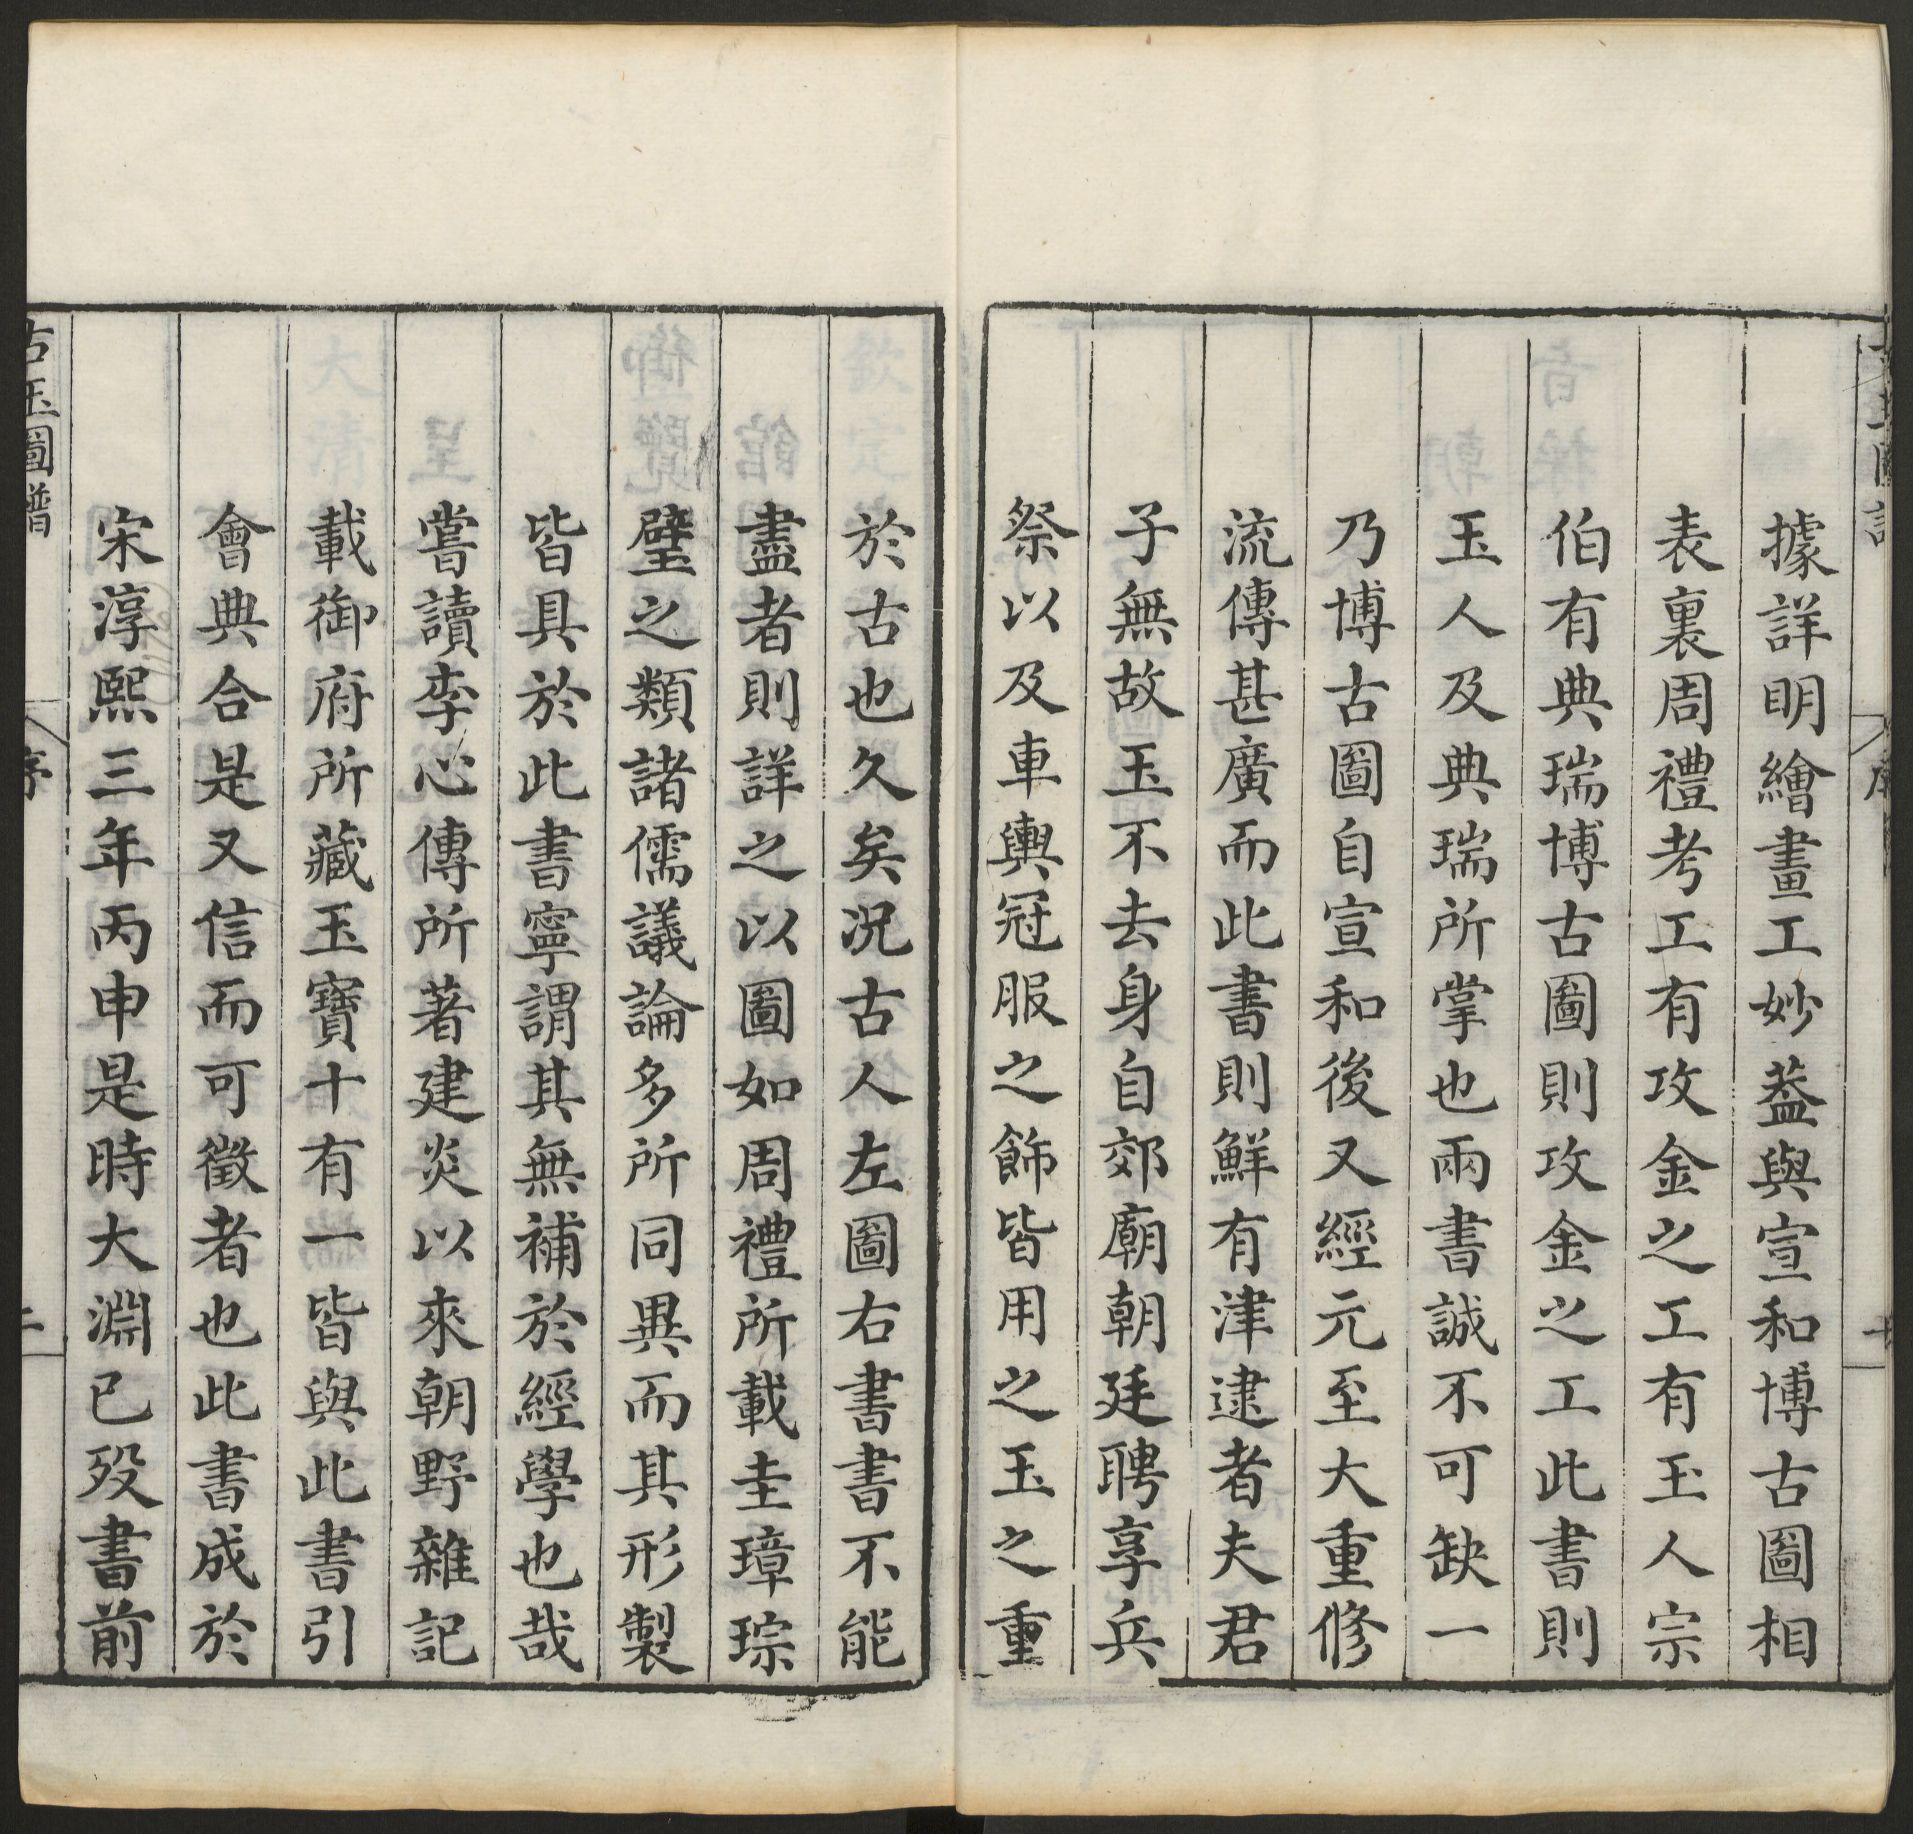 據詳明繪畫工妙蓋與宣和博古圖相
表裏周禮考工有攻金之工有玉人宗
伯有典瑞博古圖則攻金之工此書則
玉人及典瑞所掌也兩書誠不可缺一
乃博古圖自宣和後又經元至大重修
流傳甚廣而此書則鮮有津逮者夫君
子無故玉不去身自郊廟朝廷聘享兵
祭以及車輿冠服之飾皆用之玉之重
於古也久矣况古人左圖右書書不能
盡者則詳之以圖如周禮所載圭璋琮
璧之類諸儒議論多所同異而其形製
皆具於此書寧謂其無補於經學也哉
嘗讀李心傳所著建炎以來朝野雜記
載御府所藏玉寶十有一皆與此書引
會典合是又信而可徵者也此書成於
宋淳熙三年丙申是時大淵已歿書前
古玉圖譜
序